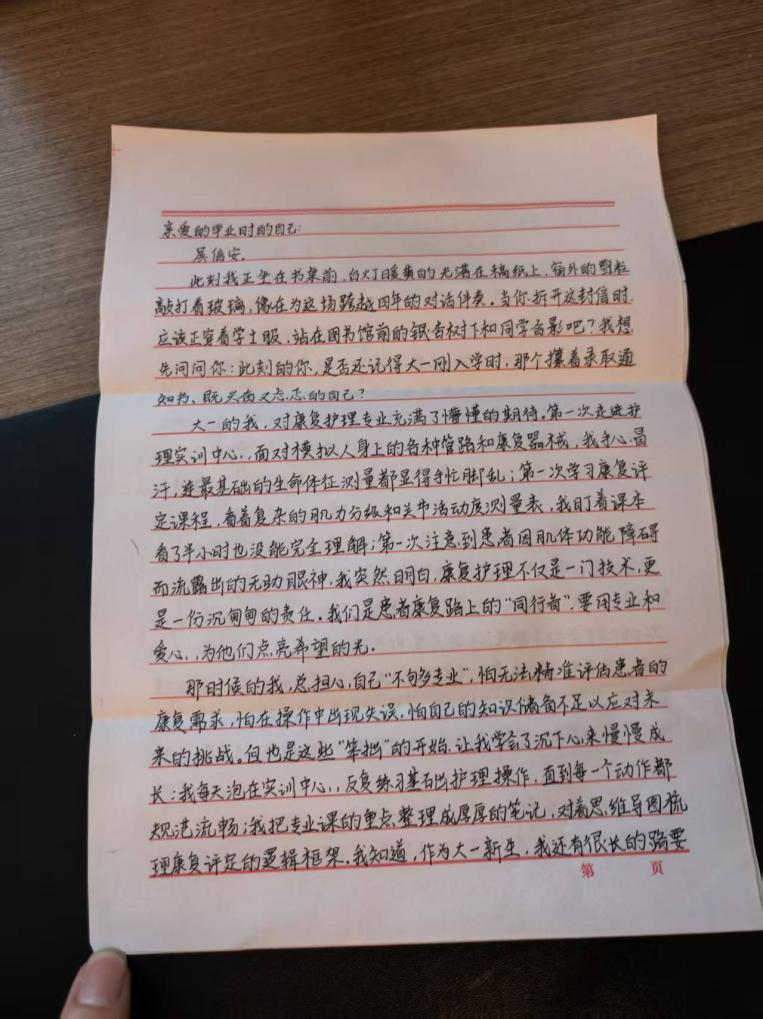 亲爱的毕业时的自己:
展信安。
此刻我正坐在书桌前,台灯暖黄的光洒在稿纸上,窗外的雪粒
敲打着玻璃,像在为这场跨越四年的对话伴奏。当你拆开这封信时,
应该正穿着学士服,站在图书馆前的银杏树下和同学合影吧?我想
先问问你:此刻的你,是否还记得大一刚入学时,那个攥着录取通
知书、既兴奋又忐忑的自己?
大一的我,对康复护理专业充满了懵懂的期待。第一次走进护
理实训中心,面对模拟人身上的各种管路和康复器械,我手心冒
汗,连最基础的生命体征测量都显得手忙脚乱;第一次学习康复评
定课程,看着复杂的肌力分级和关节活动度测量表,我盯着课本
看了半小时也没能完全理解;第一次注意到患者因肌体功能障碍
而流露出的无助眼神,我突然明白,康复护理不仅是一门技术,更
是一份沉甸甸的责任。我们是患者康复路上的“同行者”,要用专业和
爱心,为他们点亮希望的光。
那时候的我,总担心自己“不够专业”,怕无法精准评估患者的
康复需求,怕在操作中出现失误,怕自己的知识储备不足以应对未
来的挑战。但也是这些“笨拙”的开始,让我学会了沉下心来慢慢成
长:我每天泡在实训中心,反复练习基础护理操作,直到每一个动作都
规范流畅;我把专业课的重点整理成厚厚的笔记,对着思维导图梳
理康复评定的逻辑框架。我知道,作为大一新生,我还有很长的路要
第 页